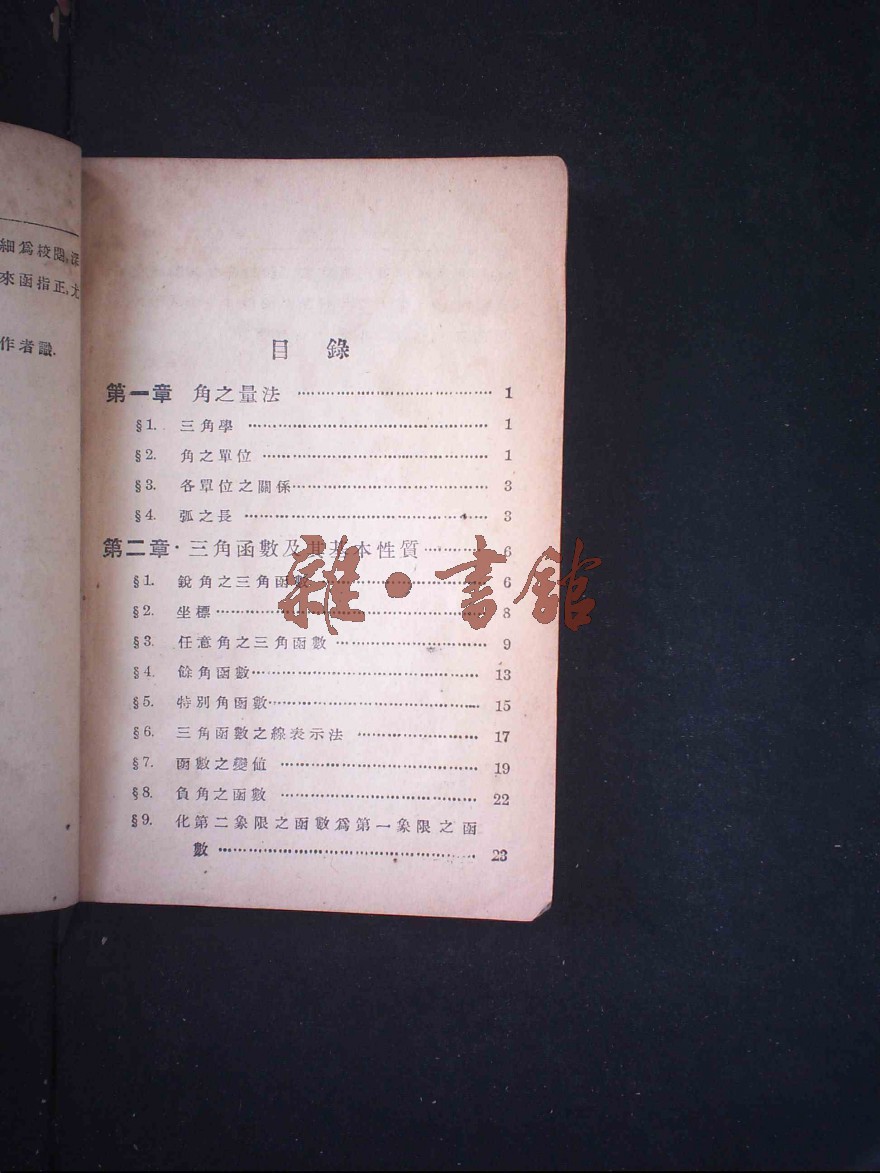 細爲校閱,深
來函指正,尤
作者識.
目 錄
第一章 角之量法 ………………………………… 1
§1. 三角學 ………………………………………… 1
§2. 角之單位 ……………………………………… 1
§3. 各單位之關係………………………………… 3
§4. 弧之長 ………………………………………… 3
第二章·三角函數及其基本性質 ………… 6
§1. 銳角之三角函數 …………………………… 6
§2. 坐標 …………………………………………… 8
§3. 任意角之三角函數 ………………………… 9
§4. 餘角函數……………………………………… 13
§5. 特別角函數…………………………………… 15
§6. 三角函數之線表示法 ……………………… 17
§7. 函數之變値 …………………………………… 19
§8. 負角之函數 …………………………………… 22
§9. 化第二象限之函數爲第一象限之函
數 ……………………………………………… 23
雜·書館